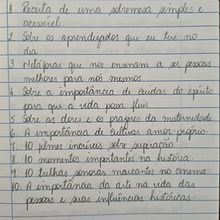 1. Receita de uma sobremesa simples e
acessível.
2. Sobre os aprendizados que eu tive no
dia.
3. Metáforas que nos ensinam a ser pessoas
melhores para nós mesmos.
4. Sobre a importância de cuidar do espírito
para que a vida possa fluir.
5. Sobre as dores e os prazeres da maternidade
6. A importância de cultivar amor próprio.
7. 10 filmes incríveis sobre superação.
8. 10 momentos importantes na história.
9. 10 trilhas sonoras marcantes no cinema
10. A importância da arte na vida das
pessoas e suas influências históricas.